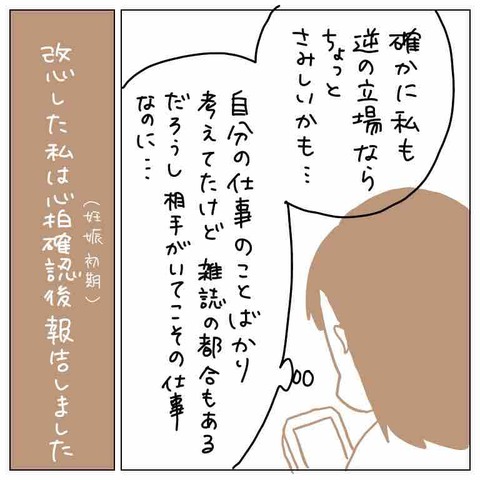 確かに私も
逆の立場なら
ちょっと
さみしいかも…
自分の仕事のことばかり
考えてたけど 雑誌の都合もある
だろうし 相手がいてこその仕事
なのに…
改心した私は心拍確認後 報告しました
(妊娠初期)